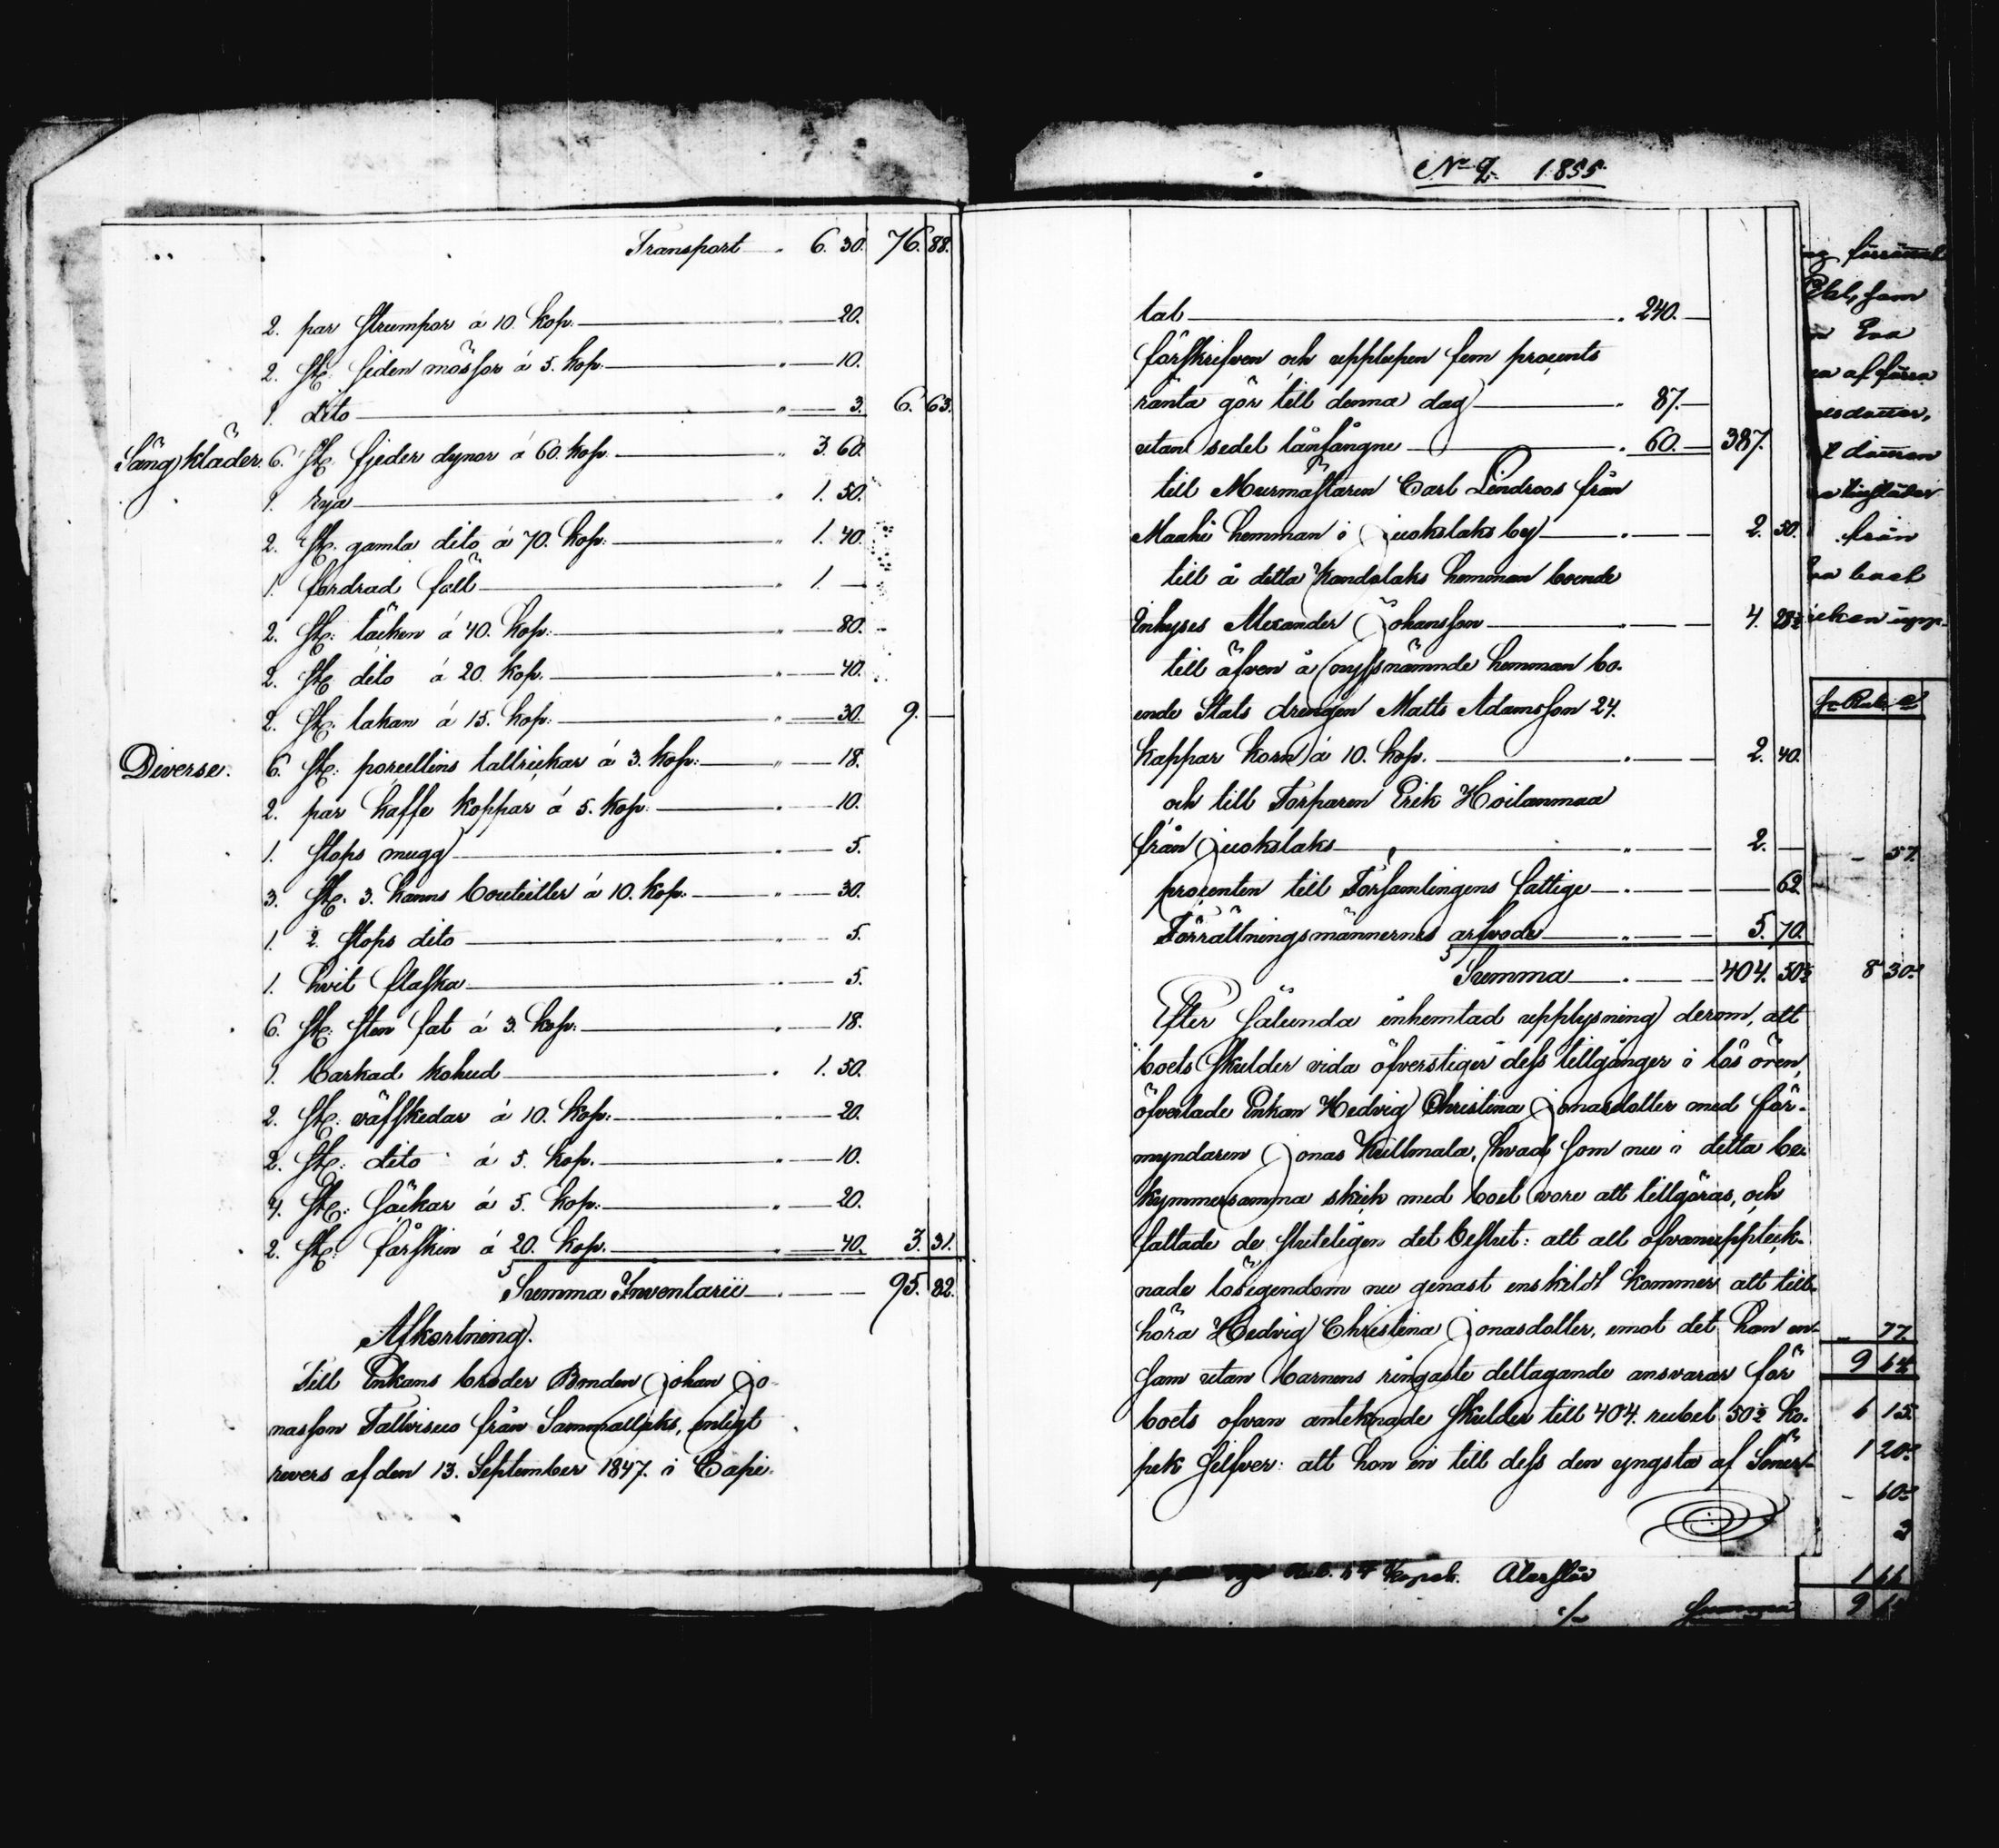 Transport " 6. 30. 76. 88.
2. par strumpor á 10. kop: " 20.
2. St: siden mössor á 5. kop: " 10.
1. dito " 3. 6. 63.
Sängkläder. 6. St: fjeder dynor á 60. kop. " 3. 60.
1. rya " 1. 50.
2. St: gamla dito á 70. kop: " 1. 40.
1. fordrad fäll " 1. —
2. St: täcken á 40. kop: " 80.
2. St: dito á 20. kop. " 40.
2. St: lakan á 15. kop: " 30. 9. —
Diverse. 6. St: porcellins tallrickar á 3. kop: " 18.
2. par kaffe koppar á 5. kop: " 10.
1. stops mugg " 5.
3. St. 3. kanns bouteiller á 10. kop. " 30.
1. 2. stops dito " 5.
1. hvit flaska " 5.
6. St: sten fat á 3. kop: " 18.
1. barkad kohud " 1. 50.
2. St: väfskedar á 10. kop: " 20.
2. St: dito á 5. kop. " 10.
4. St: säckar á 5. kop: " 20.
2. St: fårskin á 20. kop. " 40. 3. 31.
Summa Inventarii " 95. 82.
Afkortning.
Till Enkans broder Bonden Johan Jo-
nasson Tallvisuo från Sammallaks, enligt
revers af den 13. September 1847. i Capi-
No 2. 1855.
tal " 240. —
förskrifven och upplupen fem procents
ränta gör till denna dag " 87. —
utan sedel lånfångne " 60. — 387.
till Murmästaren Carl Lindroos från
Maahi hemman i Juokslaks by " 2. 50.
till å detta Kandolaks hemman boende
Inhyses Alexander Johansson " 4. 28½
till äfven å nyssnämnde hemman bo-
ende Stats drengen Matts Adamsson 24.
kappar korn á 10. kop. " 2. 40.
och till Torparen Erik Hoilanmaa
från Juokslaks " 2. —
procenten till Församlingens fattige " 62
Förrättningsmännernes arfvode " 5. 70.
Summa " 404. 50½
Efter sålunda inhemtad upplysning derom, att
boets skulder vida öfverstiger dess tillgånger i lös ören,
öfverlade Enkan Hedvig Christina Jonasdotter med för-
myndaren Jonas Kullmala, hvad som nu i detta be-
kymmersamma skick med boet vore att tillgöras, och
fattade de sluteligen det beslut: att all ofvanuppteck-
nade lösegendom nu genast enskildt kommer att till-
höra Hedvig Christina Jonasdotter, emot det hon en-
sam utan barnens ringaste deltagande ansvarar för
boets ofvan anteknade skulder till 404. rubel 50½ ko-
pek silfver: att hon in till dess den yngsta af Söner-
från
57.
8 30
77.
9 64
6 15
1 20
60
3
1 66
kopek. Återstår
Summa 9